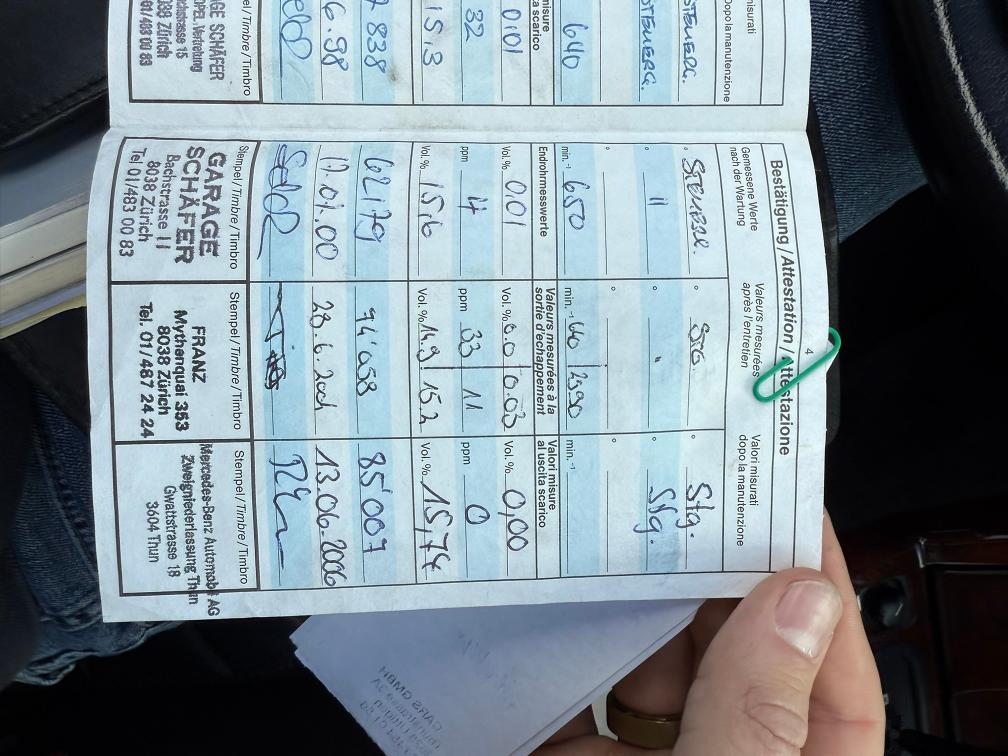 misurati
Dopo la manutenzione
640
misure
scarico
0.01
32
15,3
7 838
6.98
Stempel/Timbre/Timbro
GARAGE SCHÄFER
OPEL-Vertretung
Bachstrasse 15
8038 Zürich
Tel. 01/483 00 83
4
Bestätigung / Attestation / Attestazione
Gemessene Werte
nach der Wartung
Valeurs mesurées
après l'entretien
Valori misurati
dopo la manutenzione
° Stg. ° Stg.
° " ° Stg.
min.⁻¹ 650 min.⁻¹ 2590 min.⁻¹
Endrohrmesswerte
Valeurs mesurées à la
sortie d'échappement
Valori misure
al uscita scarico
Vol. % 0,01 Vol. % 0.0 0.03 Vol. % 0,00
ppm 4 ppm 33 11 ppm 0
Vol. % 15,6 Vol. % 14.9 15.2 Vol. % 15,74
62179 94'058 85'007
11.01.00 23.6.2004 13.06.2006
Stempel/Timbre/Timbro Stempel/Timbre/Timbro Stempel/Timbre/Timbro
GARAGE
SCHÄFER
Bachstrasse 11
8038 Zürich
Tel 01/483 00 83
FRANZ
Mythenquai 353
8038 Zürich
Tel. 01/487 24 24
Mercedes-Benz Automobil AG
Zweigniederlassung Thun
Gwattstrasse 18
3604 Thun
CARS GMBH